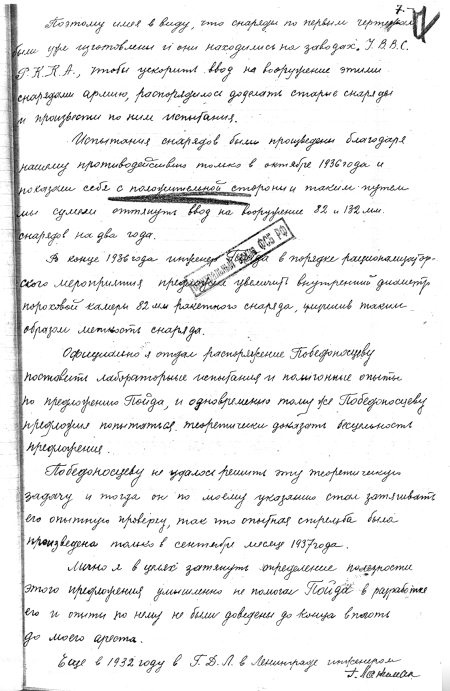 7
Поэтому имея в виду, что снаряды по первым чертежам
были уже изготовлены и они находились на заводах, У.В.В.С.
Р.К.К.А., чтобы ускорить ввод на вооружение этими
снарядами армию, распорядилось доделать старые снаряды
и произвести по ним испытания.
Испытания снарядов были произведены благодаря
нашему противодействию только в октябре 1936 года и
показали себя с положительной стороны и таким путем
мы сумели оттянуть ввод на вооружение 82 и 132 мм.
снарядов на два года.
В конце 1936 года инженер Пойда в порядке рационализатор-
ского мероприятия предложил увеличить внутренний диаметр
пороховой камеры 82 мм ракетного снаряда, улучшив таким
образом меткость снаряда.
ЦЕНТРАЛЬНЫЙ АРХИВ ФСБ РФ
Официально я отдал распоряжение Победоносцеву
поставить лабораторные испытания и полигонные опыты
по предложению Пойда, и одновременно тому же Победоносцеву
предложил попытаться теоретически доказать
предложения.
Победоносцеву не удалось решить эту теоретическую
задачу и тогда он по моему указанию стал затягивать
его опытную проверку, так что опытная стрельба была
произведена только в сентябре месяце 1937 года.
Лично я в целях затянуть определение полезности
этого предложения умышленно не помогал Пойда в разработке
его и опыты по нему не были доведены до конца вплоть
до моего ареста.
Еще в 1932 году в Г.Д.Л. в Ленинграде инженером
Г. Лангемак